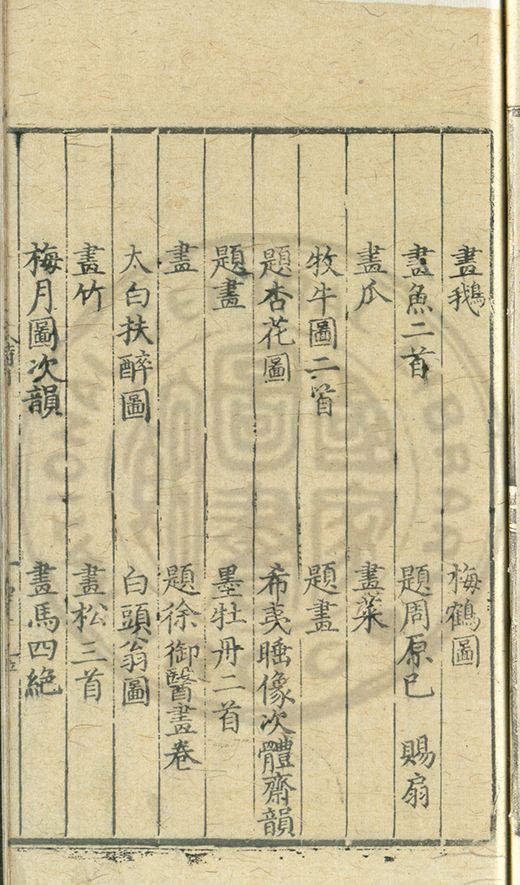 畫鵝 梅鶴圖
畫魚二首 題周原已 賜扇
畫瓜 畫菜
牧牛圖二首 題畫
題杏花圖 希夷睡像次體齋韻
題畫 墨牡丹二首
畫 題徐御醫畫卷
太白扶醉圖 白頭翁圖
畫竹 畫松三首
梅月圖次韻 畫馬四絕